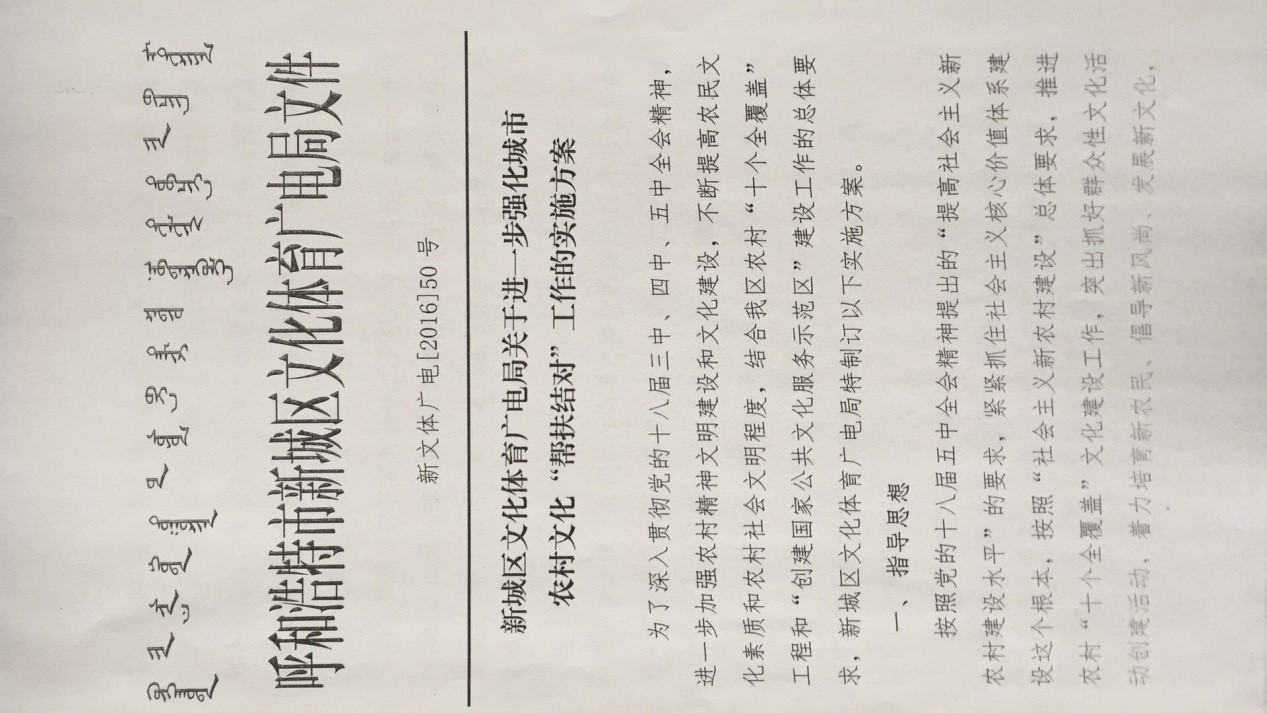 呼和浩特市新城区文化体育广电局文件
新文体广电[2016]50 号
新城区文化体育广电局关于进一步强化城市
农村文化“帮扶结对”工作的实施方案
为了深入贯彻党的十八届三中、四中、五中全会精神，
进一步加强农村精神文明建设和文化建设，不断提高农民文
化素质和农村社会文明程度，结合我区农村“十个全覆盖”
工程和“创建国家公共文化服务示范区”建设工作的总体要
求，新城区文化体育广电局特制订以下实施方案。
一、 指导思想
按照党的十八届五中全会精神提出的“提高社会主义新
农村建设水平”的要求，紧紧抓住社会主义核心价值体系建
设这个根本，按照“社会主义新农村建设”总体要求，推进
农村“十个全覆盖”文化建设工作，突出抓好群众性文化活
动创建活动，着力培育新农民、倡导新风尚、发展新文化，